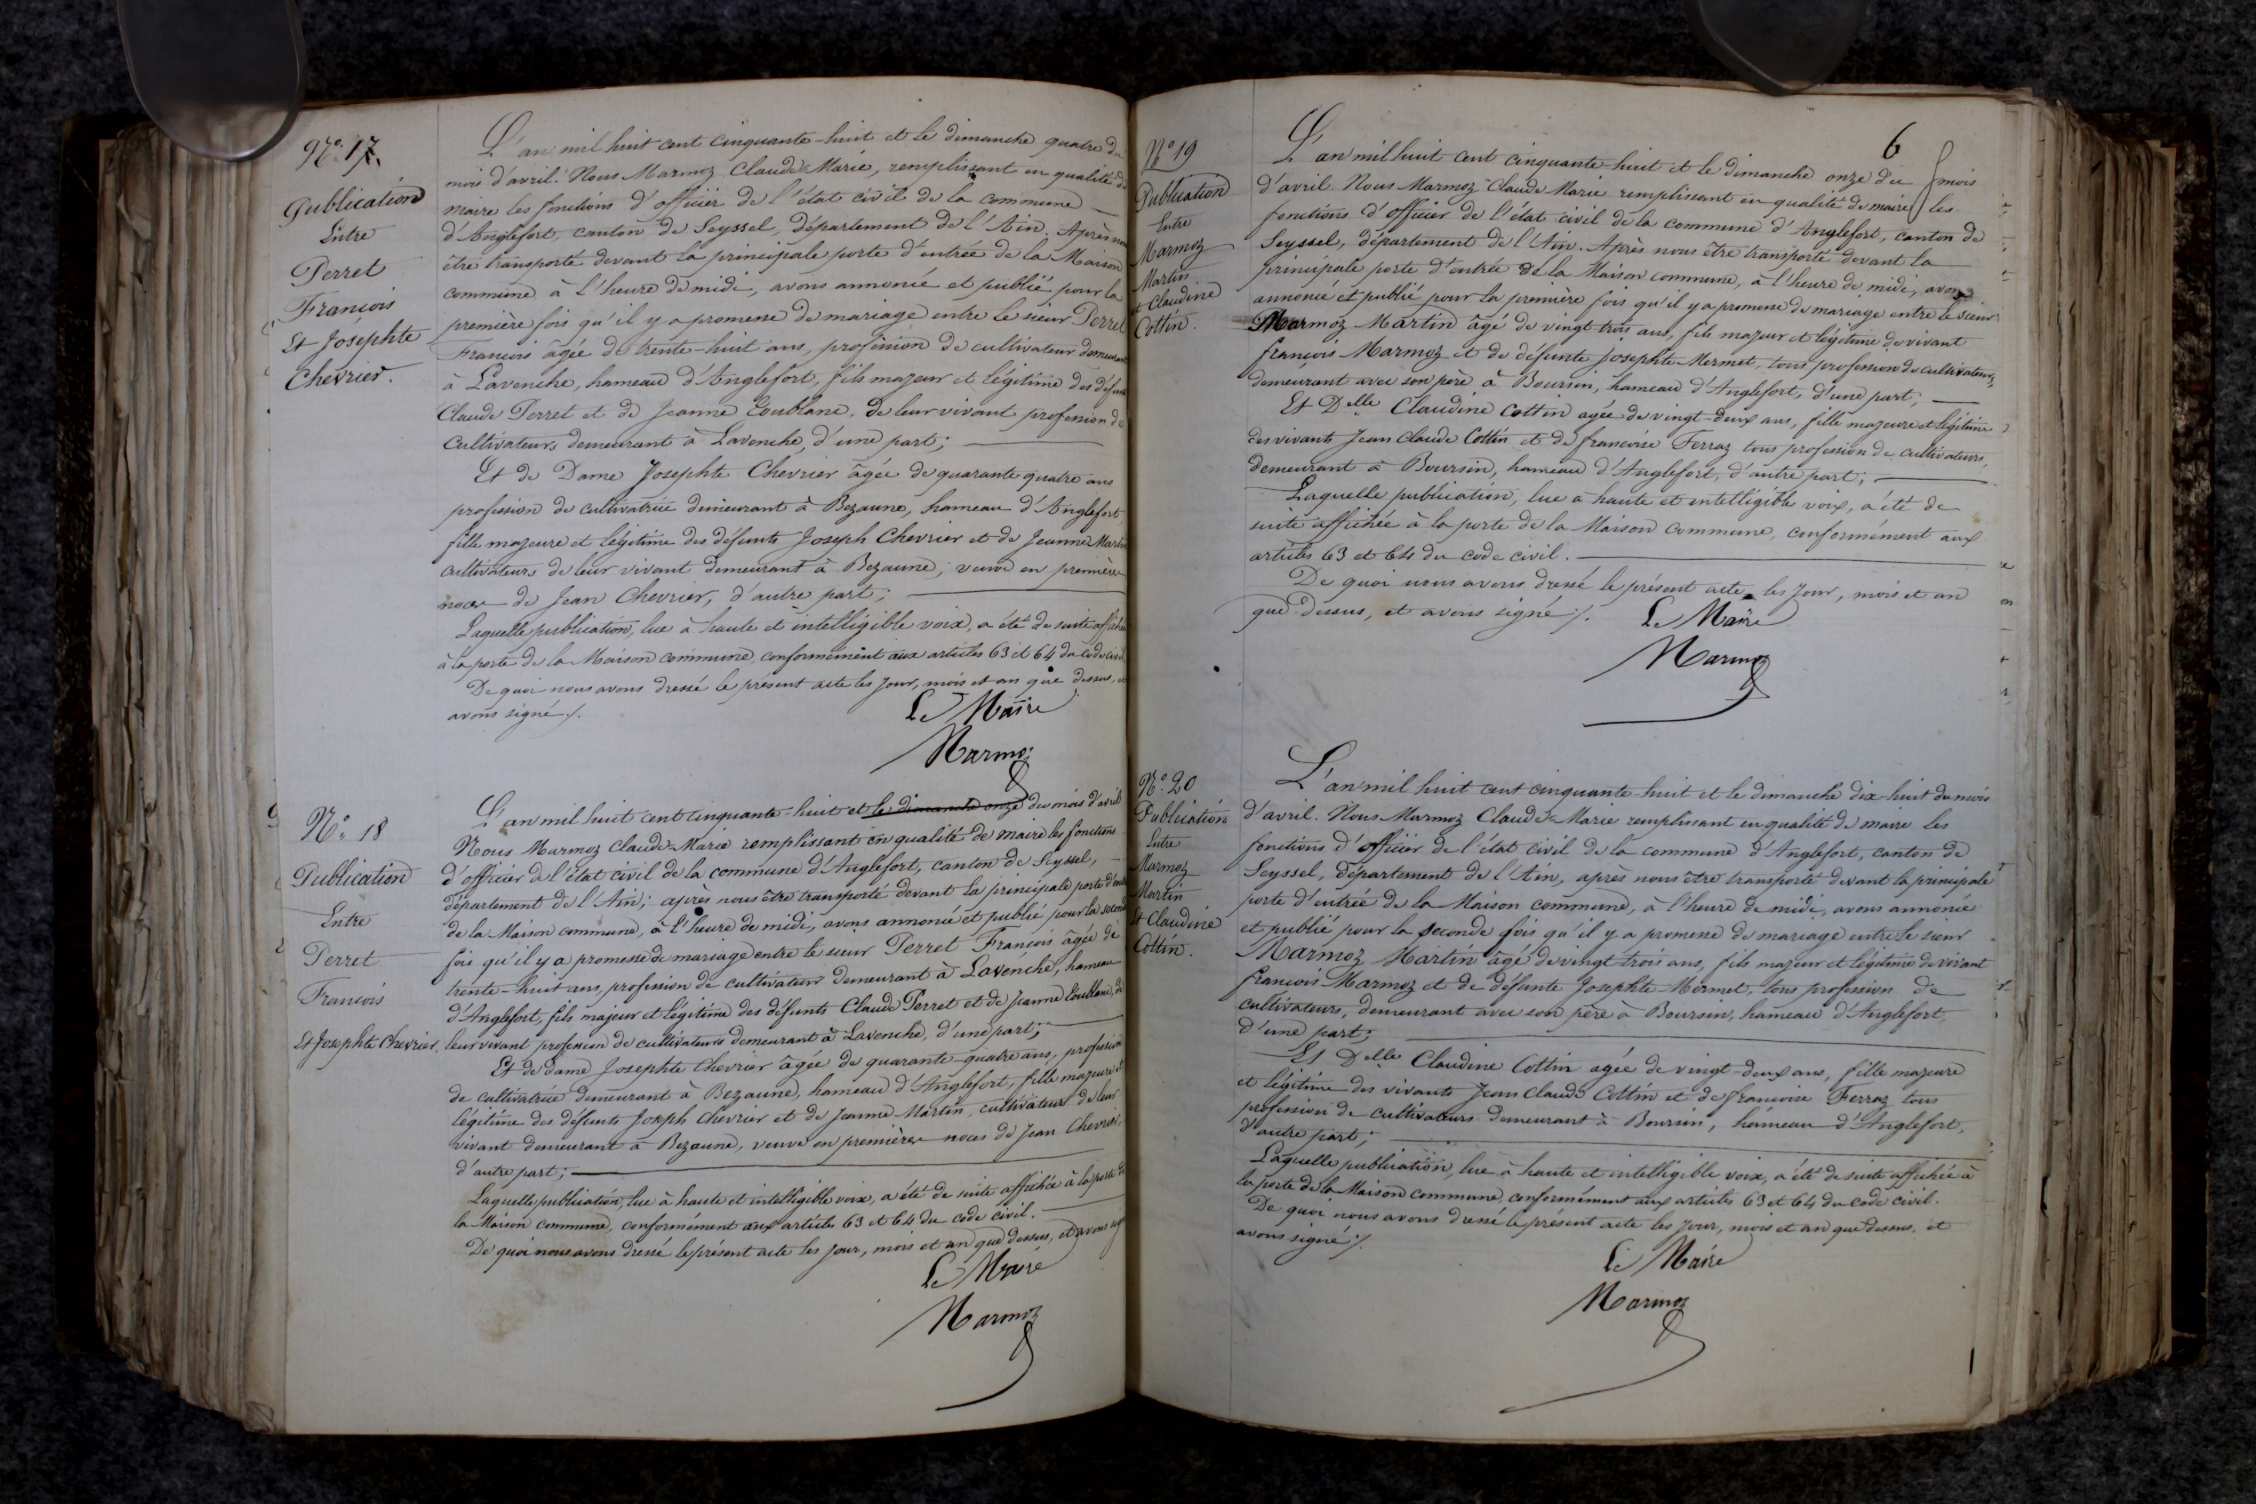 N.° 17.
Publication
Entre
Perret
François
Et Josephte
Chevrier.
L'an mil huit cent cinquante-huit et le dimanche quatre du
mois d'avril. Nous Marmoz Claude-Marie, remplissant en qualité de
maire les fonctions d'officier de l'état civil de la commune
d'Anglefort, canton de Seyssel, département de l'Ain. Après nous
être transporté devant la principale porte d'entrée de la Maison
commune à l'heure de midi, avons annoncé et publié pour la
première fois qu'il y a promesse de mariage entre le sieur Perret
François âgée de trente-huit ans, profession de cultivateur demeurant
à Lavenche, hameau d'Anglefort, fils majeur et légitime des défunts
Claude Perret et de Jeanne Loublanc, de leur vivant profession de
Cultivateurs demeurant à Lavenche, d'une part;
Et de Dame Josephte Chevrier âgée de quarante quatre ans
profession de cultivatrice demeurant à Bezaune, hameau d'Anglefort,
fille majeure et légitime des défunts Joseph Chevrier et de Jeanne Martin
cultivateurs de leur vivant demeurant à Bezaune; veuve en première
noces de Jean Chevrier, d'autre part;
Laquelle publication, lue à haute et intelligible voix, a été de suite affichée
à la porte de la Maison commune conformément aux articles 63 et 64 du code civil
De quoi nous avons dressé le présent acte les jour, mois et an que dessus, et
avons signé ./.
Le Maire
Marmoz
N.° 18
Publication
Entre
Perret
François
Et Josephte Chevrier
L'an mil huit cent cinquante-huit et le dimanche onze du mois d'avril
Nous Marmoz Claude-Marie remplissant en qualité de maire les fonctions
d'officier de l'état civil de la commune d'Anglefort, canton de Seyssel,
département de l'Ain; après nous être transporté devant la principale porte d'entrée
de la Maison commune, à l'heure de midi, avons annoncé et publié pour la seconde
fois qu'il y a promesse de mariage entre le sieur Perret François âgée de
trente-huit ans, profession de cultivateur demeurant à Lavenche, hameau
d'Anglefort, fils majeur et légitime des défunts Claude Perret et de Jeanne Loublanc, de
leur vivant profession de cultivateurs demeurant à Lavenche, d'une part;
Et de dame Josephte Chevrier âgée de quarante-quatre ans, profession
de cultivatrice demeurant à Bezaune, hameau d'Anglefort, fille majeure et
légitime des défunts Joseph Chevrier et de Jeanne Martin, cultivateurs de leur
vivant demeurant à Bezaune, veuve en première noces de Jean Chevrier,
d'autre part;
Laquelle publication, lue à haute et intelligible voix, a été de suite affichée à la porte de
la Maison commune, conformément aux articles 63 et 64 du code civil.
De quoi nous avons dressé le présent acte les jour, mois et an que dessus, et avons signé
Le Maire
Marmoz
6
N.° 19
Publication
Entre
Marmoz
Martin
et Claudine
Cottin.
L'an mil huit cent cinquante-huit et le dimanche onze du mois
d'avril. Nous Marmoz Claude Marie remplissant en qualité de maire les
fonctions d'officier de l'état civil de la commune d'Anglefort, canton de
Seyssel, département de l'Ain. Après nous être transporté devant la
principale porte d'entrée de la Maison commune, à l'heure de midi, avons
annoncé et publié pour la première fois qu'il y a promesse de mariage entre le sieur
Marmoz Martin âgé de vingt trois ans, fils majeur et légitime de vivant
françois Marmoz et de défunte Josephte Mermet, tous profession de cultivateurs,
demeurant avec son père à Boursin, hameau d'Anglefort, d'une part;
Et Delle Claudine Cottin agée de vingt-deux ans, fille majeure et légitime
des vivants Jean Claude Cottin et de françoise Ferraz tous profession de cultivateurs,
demeurant à Boursin, hameau d'Anglefort, d'autre part;
Laquelle publication, lue à haute et intelligible voix, a été de
suite affichée à la porte de la Maison Commune, conformément aux
articles 63 et 64 du code civil.
De quoi nous avons dressé le présent acte les jour, mois et an
que dessus, et avons signé ./.
Le Maire
Marmoz
N.° 20
Publication
Entre
Marmoz
Martin
Et Claudine
Cottin.
L'an mil huit cent cinquante-huit et le dimanche dix-huit du mois
d'avril. Nous Marmoz Claude-Marie remplissant en qualité de maire les
fonctions d'officier de l'état civil de la commune d'Anglefort, canton de
Seyssel, département de l'Ain, après nous être transporté devant la principale
porte d'entrée de la Maison commune, à l'heure de midi, avons annoncée
et publié pour la seconde fois qu'il y a promesse de mariage entre le sieur
Marmoz Martin âgé de vingt trois ans, fils majeur et légitime de vivant
françois Marmoz et de défunte Josephte Mermet, tous profession de
cultivateurs, demeurant avec son père à Boursin, hameau d'Anglefort
d'une part;
Et Delle Claudine Cottin agée de vingt-deux ans, fille majeure
et légitime des vivants Jean Claude Cottin et de françoise Ferraz tous
profession de cultivateurs demeurant à Boursin, hameau d'Anglefort,
d'autre part;
Laquelle publication, lue à haute et intelligible voix, a été de suite affichée à
la porte de la Maison commune, conformément aux articles 63 et 64 du code civil.
De quoi nous avons dressé le présent acte les jour, mois et an que dessus, et
avons signé ./.
Le Maire
Marmoz